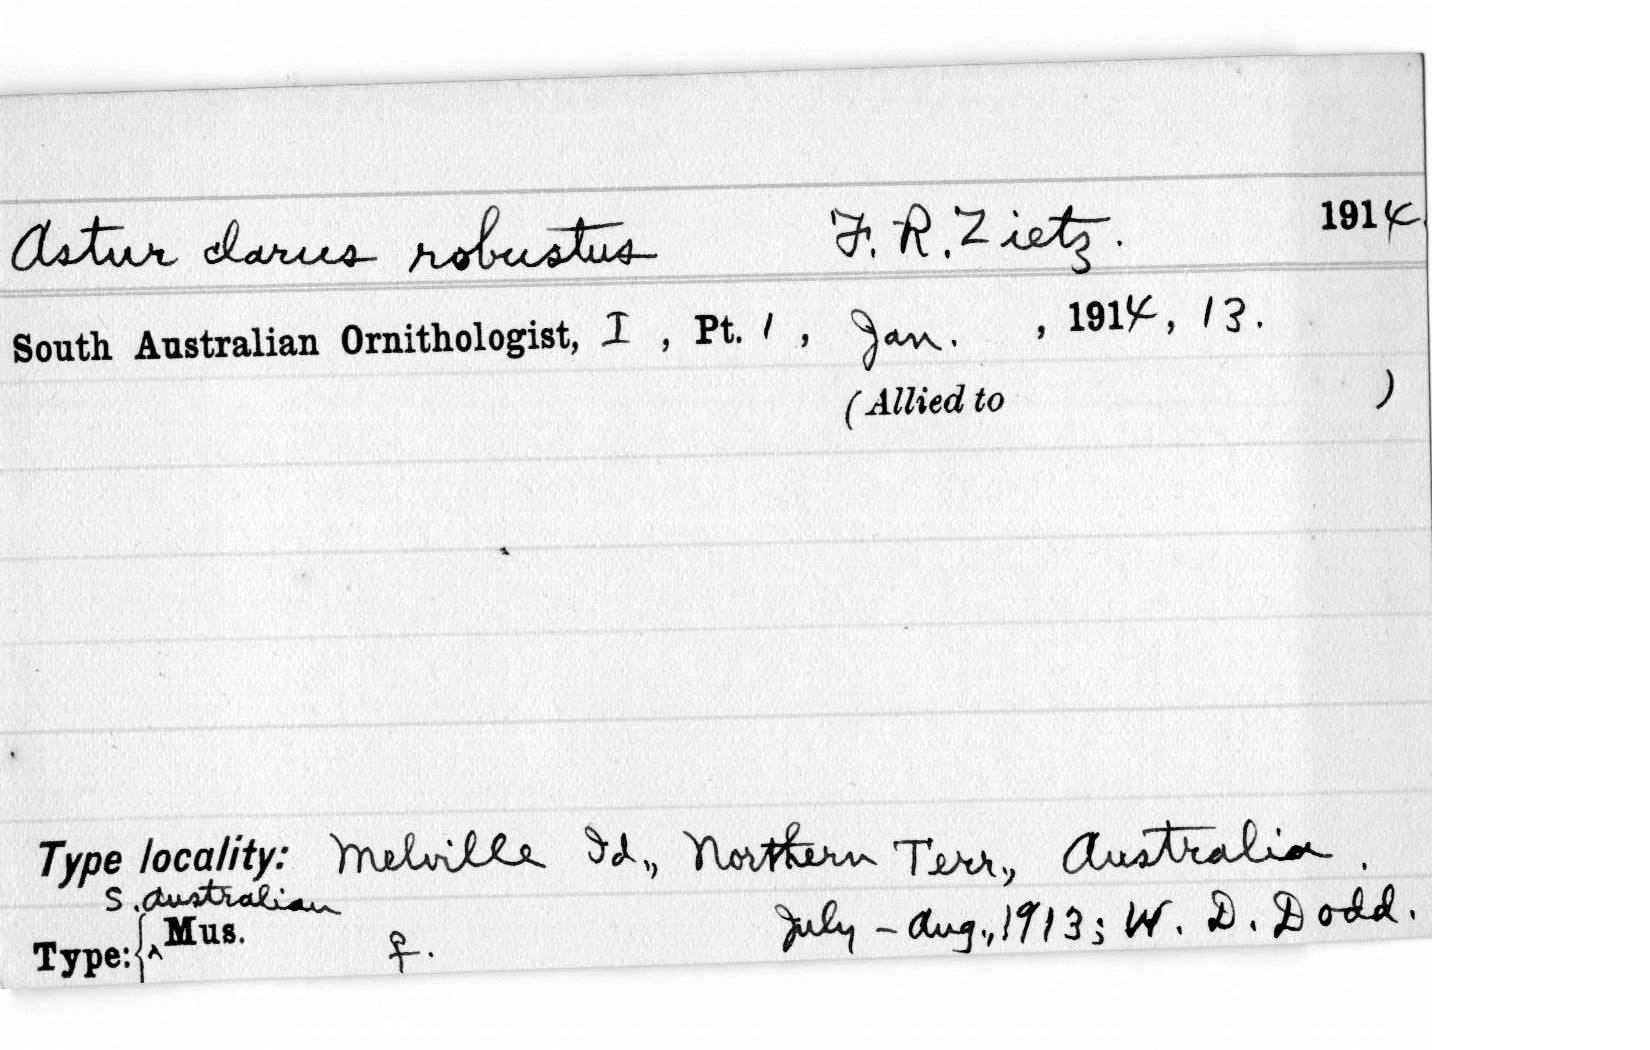 Astur clarus robustus F. R. Zietz. 1914.
South Australian Ornithologist, I, Pt. 1, Jan., 1914, 13.
(Allied to )
Type locality: Melville Id., Northern Terr., Australia.
S. Australian
Type: { ^ Mus. ♀. July - Aug., 1913; W. D. Dodd.